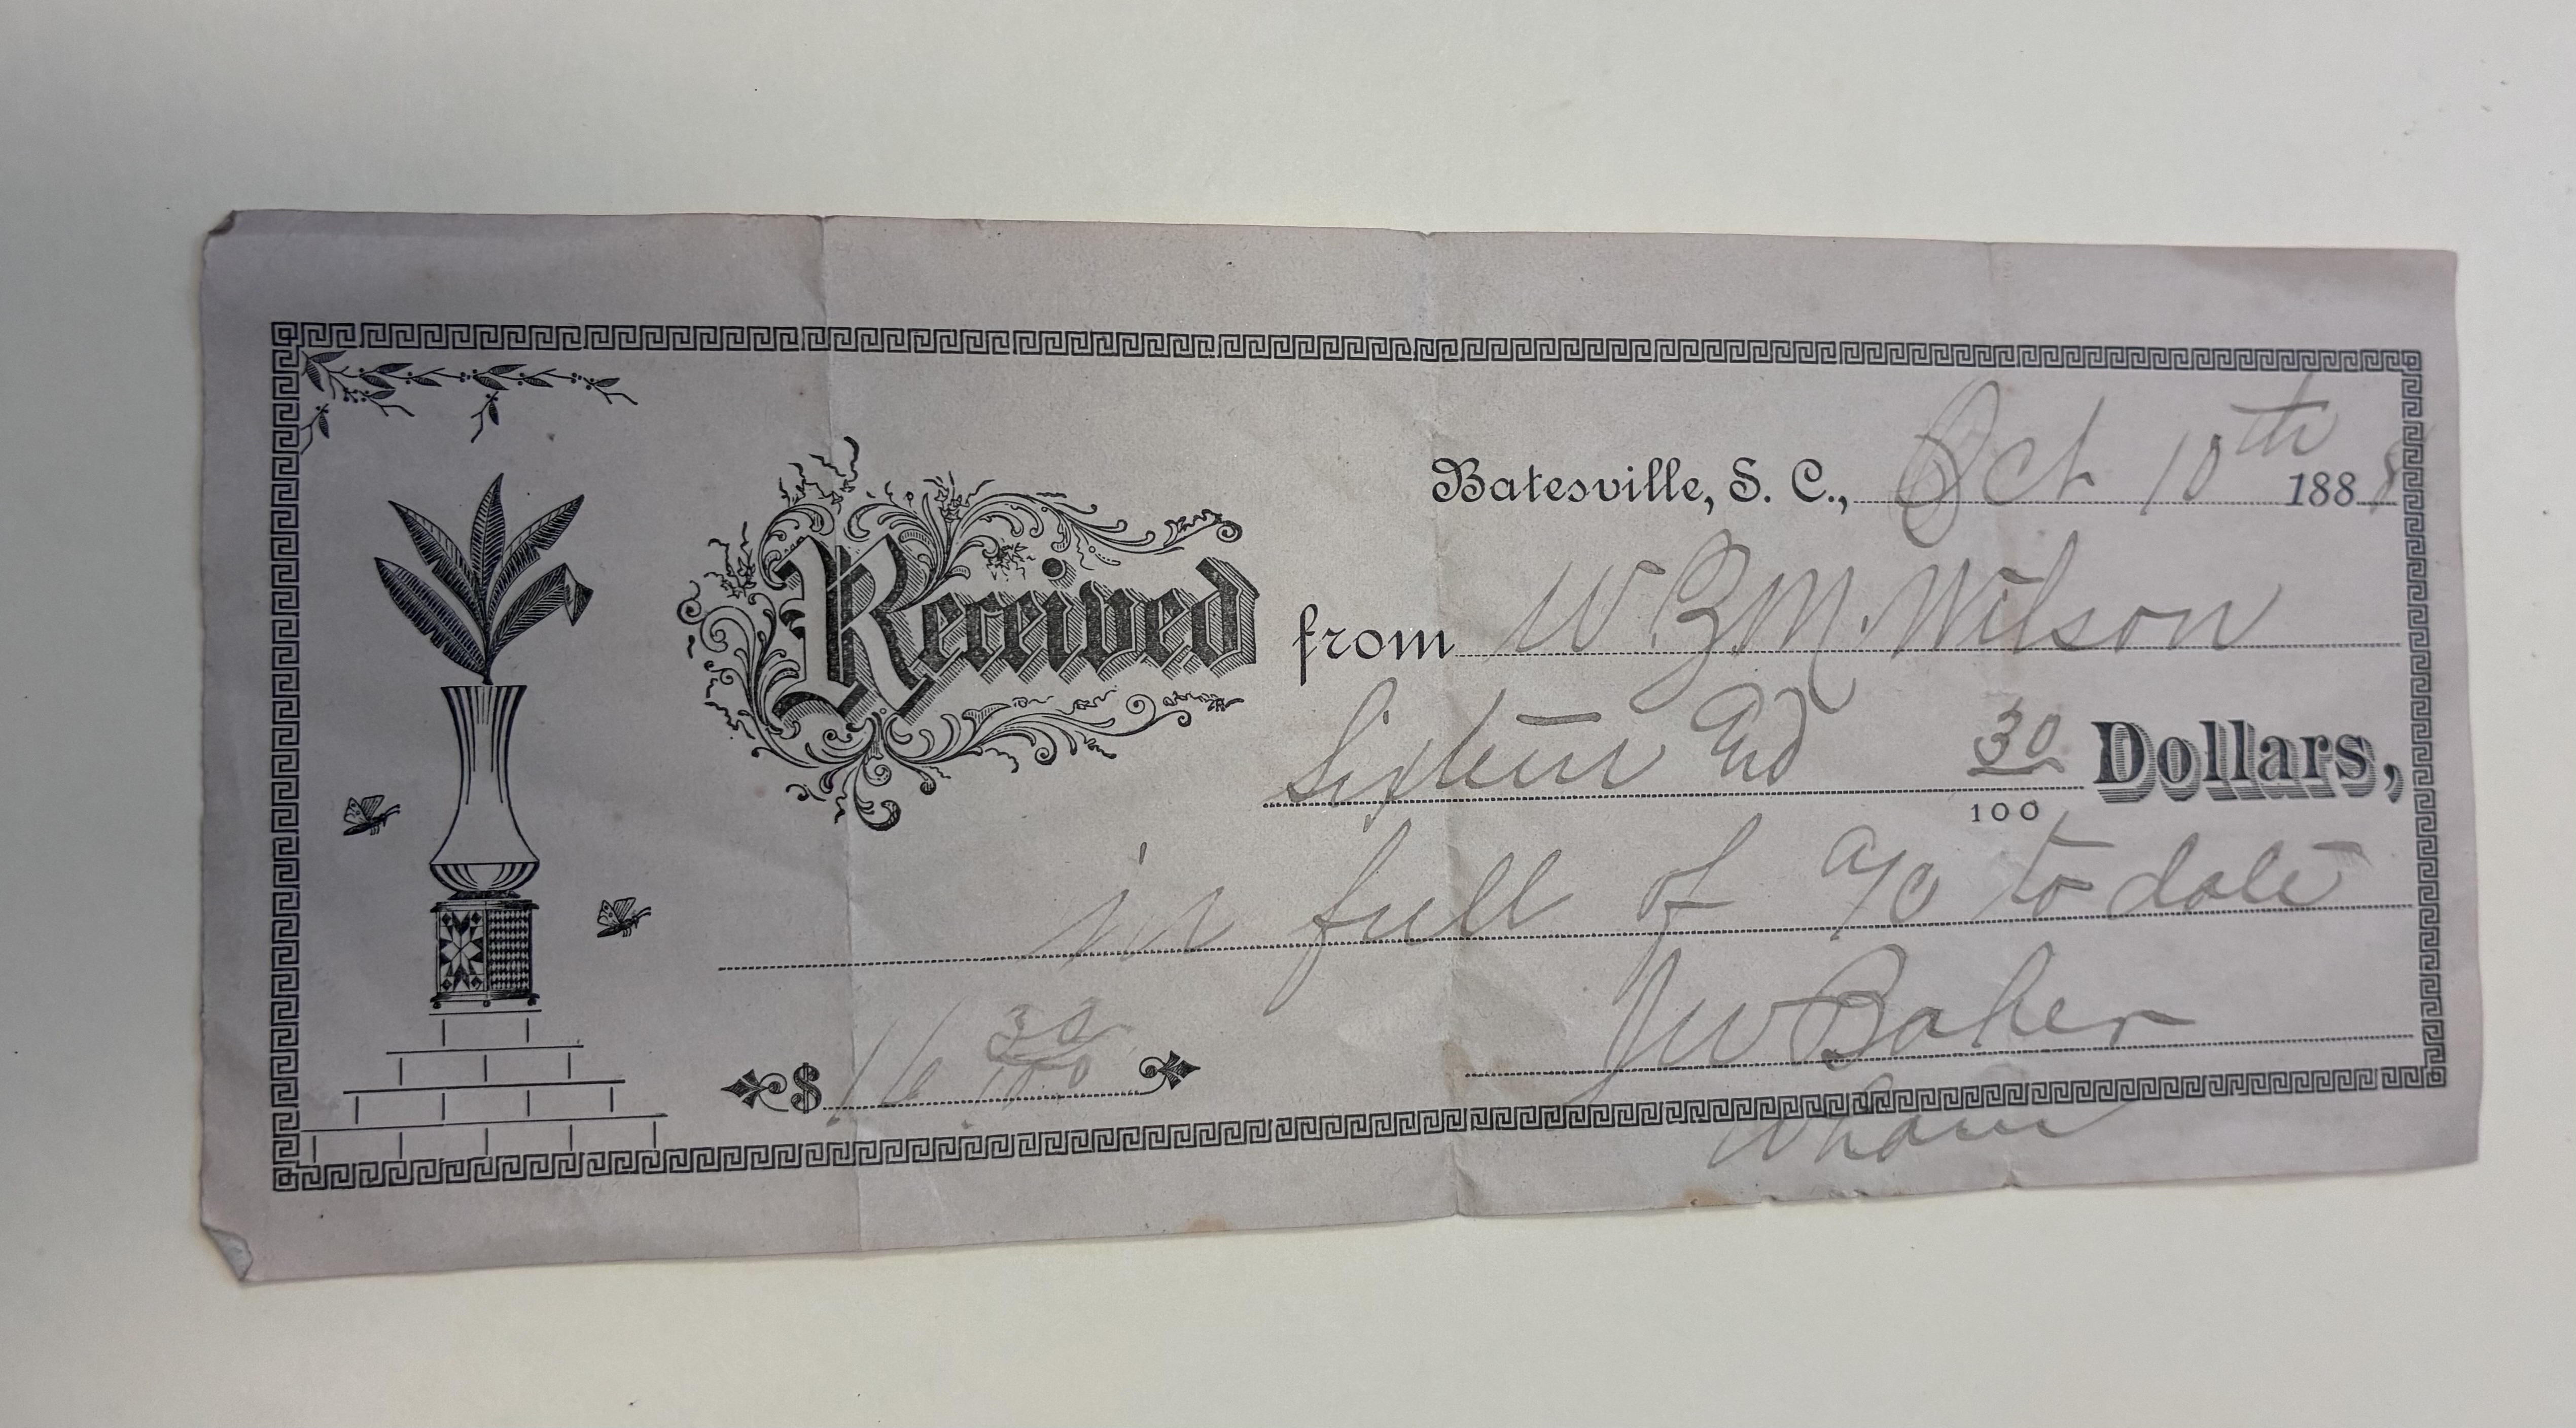 Batesville, S. C., Oct 10th 1888
Received from W. B. M. Wilson
Sixteen and 30/100 Dollars,
in full of a/c to date
$ 16 30/100
J W Baker